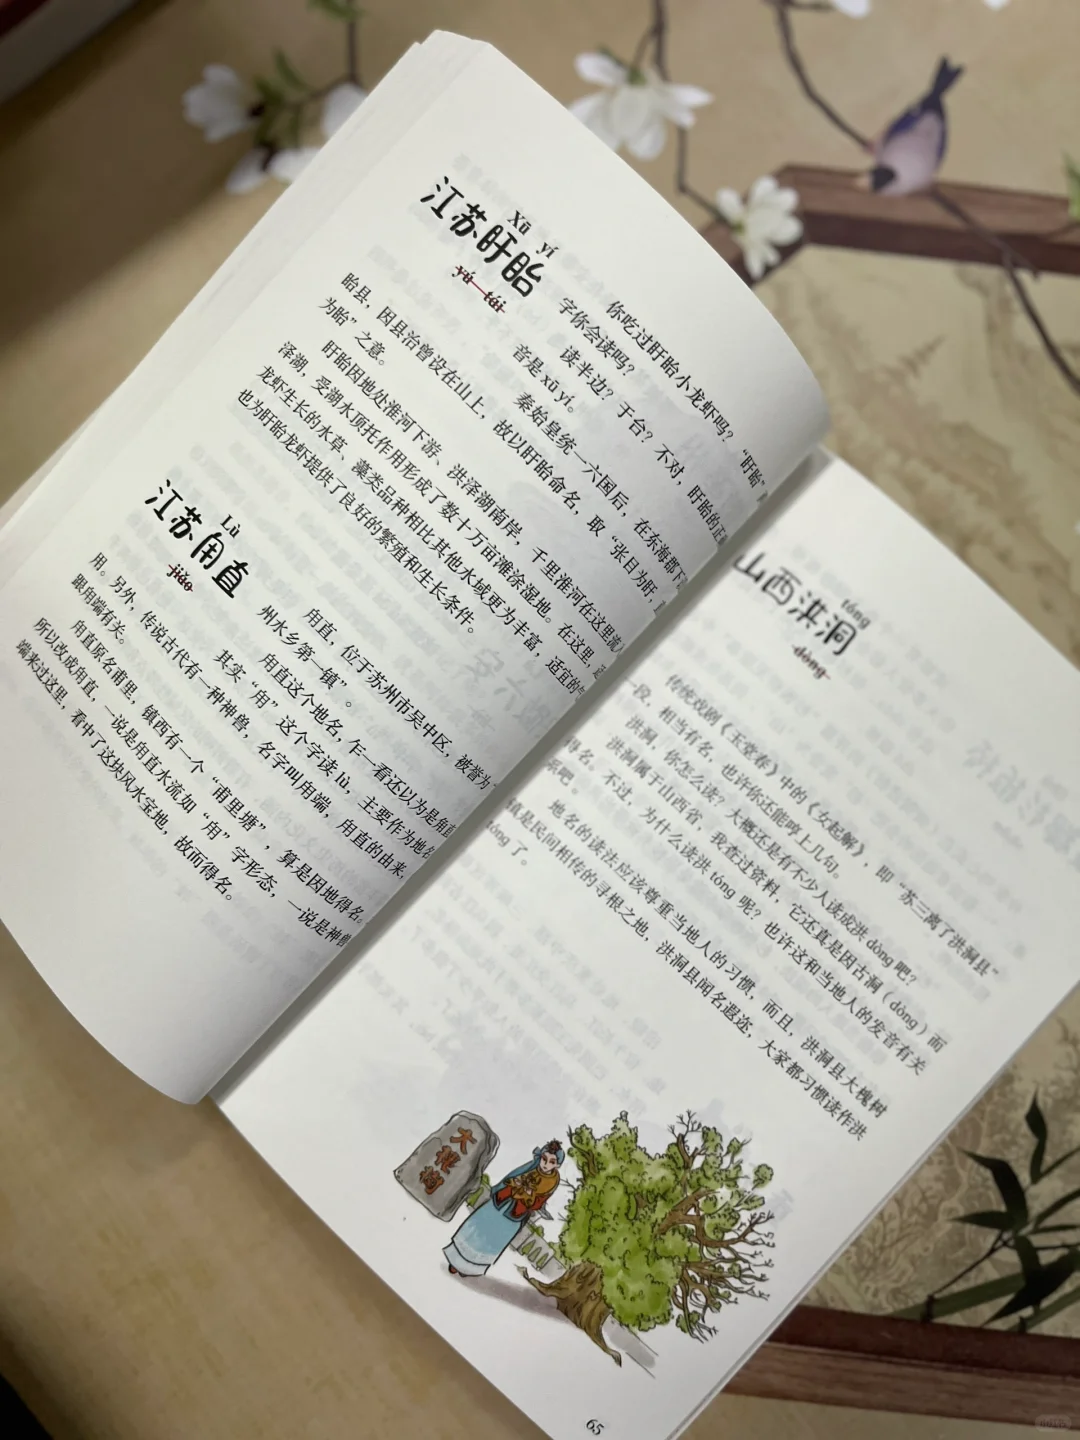 Xū yí
江苏盱眙
yú tái
你吃过盱眙小龙虾吗？“盱眙”
字你会读吗？
读半边？于台？不对，盱眙的正
音是 xū yí。
秦始皇统一六国后，在东海郡下
眙县，因县治曾设在山上，故以盱眙命名，取“张目为盱，
为眙”之意。
盱眙因地处淮河下游、洪泽湖南岸，千里淮河在这里流入
泽湖，受湖水顶托作用形成了数十万亩滩涂湿地。在这里，
龙虾生长的水草、藻类品种相比其他水域更为丰富，适宜的
也为盱眙龙虾提供了良好的繁殖和生长条件。
Lù
江苏甪直
jiǎo
甪直，位于苏州市吴中区，被誉为“
州水乡第一镇”。
甪直这个地名，乍一看还以为是角直
其实“甪”这个字读 lù，主要作为地名
用。另外，传说古代有一种神兽，名字叫甪端，甪直的由来，
跟甪端有关。
甪直原名甫里，镇西有一个“甫里塘”，算是因地得名。
所以改成甪直，一说是甪直水流如“甪”字形态，一说是神兽
端来过这里，看中了这块风水宝地，故而得名。
tóng
山西洪洞
dòng
传统戏剧《玉堂春》中的《女起解》，即“苏三离了洪洞县”
一段，相当有名，也许你还能哼上几句。
洪洞，你怎么读？大概还是有不少人读成洪 dòng 吧？
洪洞属于山西省，我查过资料，它还真是因古洞（dòng）而
得名。不过，为什么读洪 tóng 呢？也许这和当地人的发音有关
系吧。
地名的读法应该尊重当地人的习惯，而且，洪洞县大槐树
镇是民间相传的寻根之地，洪洞县闻名遐迩，大家都习惯读作洪
tóng 了。
大槐树
65